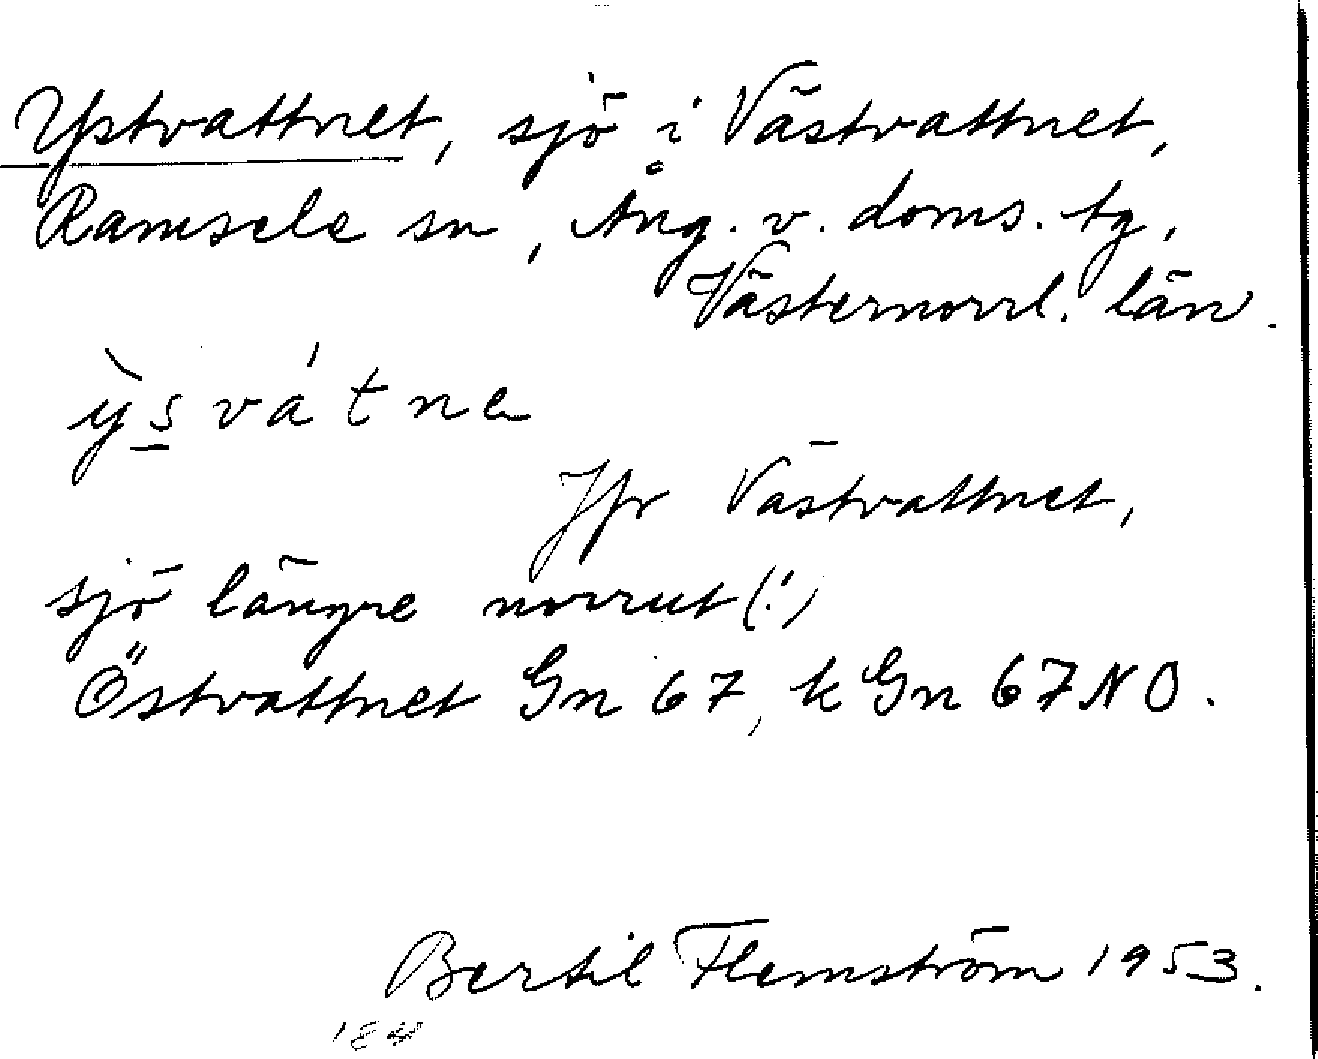 Ystvattnet, sjö i Västvattnet,
Ramsele sn, Ång. v. doms. tg,
Västernorrl. län.
ỳs vá t n e
Jfr Västvattnet,
sjö längre norrut (!)
Östvattnet Gn 67, k Gn 67 NO.
Bertil Flemström 1953.